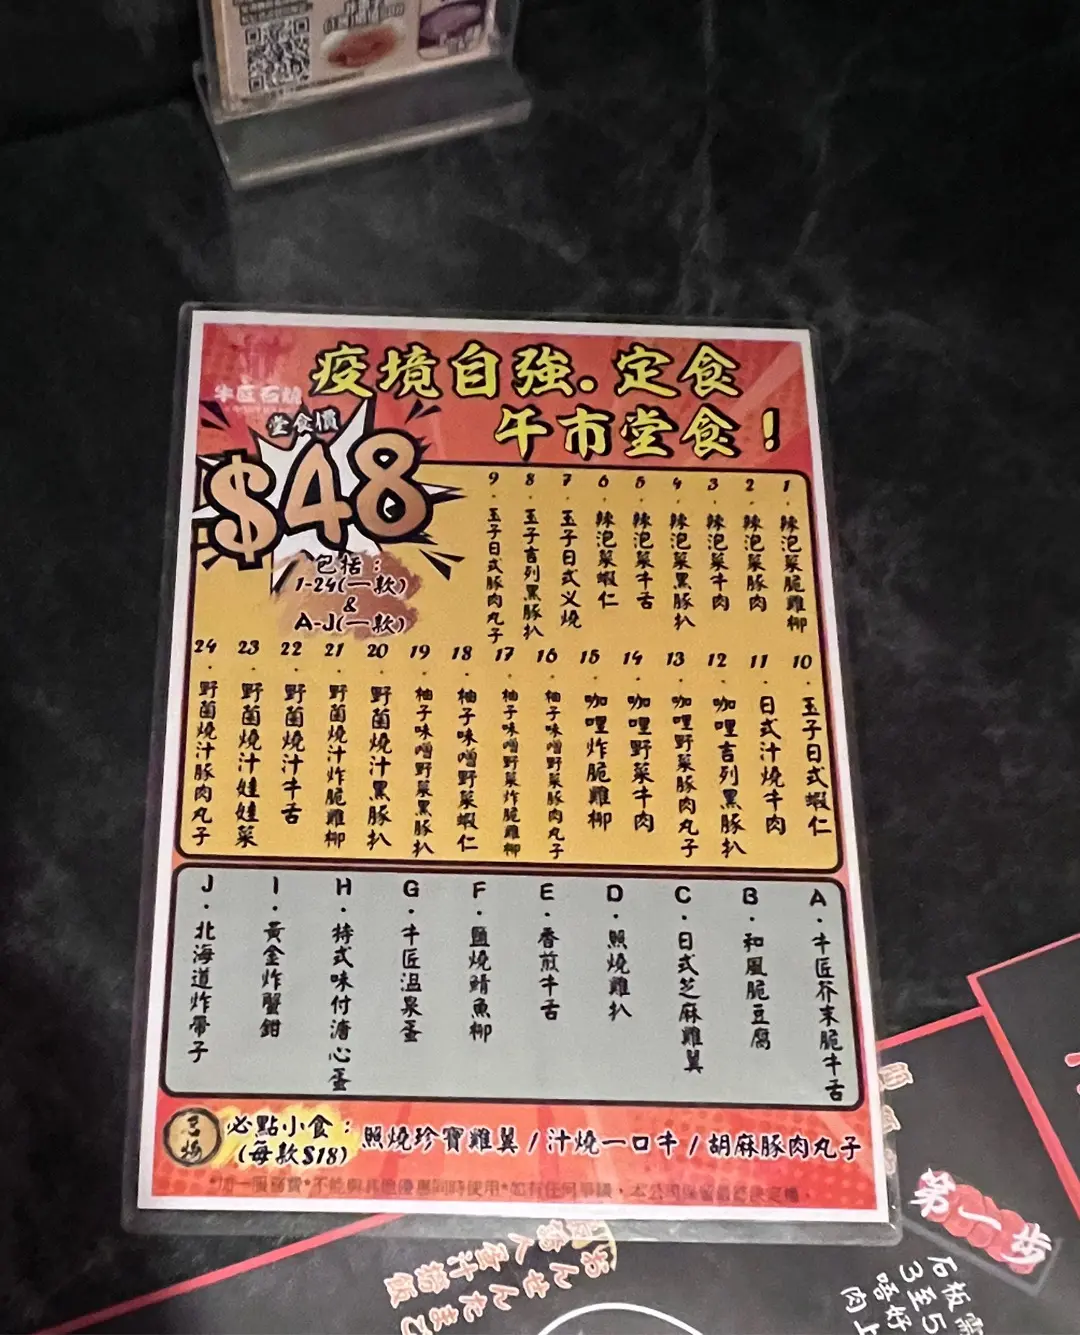 疫境自強.定食
午市堂食！
牛匠石燒
堂食價
$48
包括：
1-24(一款)
&
A-J(一款)
1.辣泡菜脆雞柳
2.辣泡菜豚肉
3.辣泡菜牛肉
4.辣泡菜黑豚扒
5.辣泡菜牛舌
6.辣泡菜蝦仁
7.玉子日式叉燒
8.玉子吉列黑豚扒
9.玉子日式豚肉丸子
10.玉子日式蝦仁
11.日式汁燒牛肉
12.咖哩吉列黑豚扒
13.咖哩野菜豚肉丸子
14.咖哩野菜牛肉
15.咖哩炸脆雞柳
16.柚子味噌野菜豚肉丸子
17.柚子味噌野菜炸脆雞柳
18.柚子味噌野菜蝦仁
19.柚子味噌野菜黑豚扒
20.野菌燒汁黑豚扒
21.野菌燒汁炸脆雞柳
22.野菌燒汁牛舌
23.野菌燒汁娃娃菜
24.野菌燒汁豚肉丸子
A.牛匠芥末脆牛舌
B.和風脆豆腐
C.日式芝麻雞翼
D.照燒雞扒
E.香煎牛舌
F.鹽燒鯖魚柳
G.牛匠溫泉蛋
H.特式味付溏心蛋
I.黃金炸蟹鉗
J.北海道炸帶子
必點小食：
(每款$18)
照燒珍寶雞翼/汁燒一口牛/胡麻豚肉丸子
*加一服務費*不能與其他優惠同時使用*如有任何爭議，本公司保留最終決定權
第一步
石板需
3至5
唔好
肉上
おんせんたまご